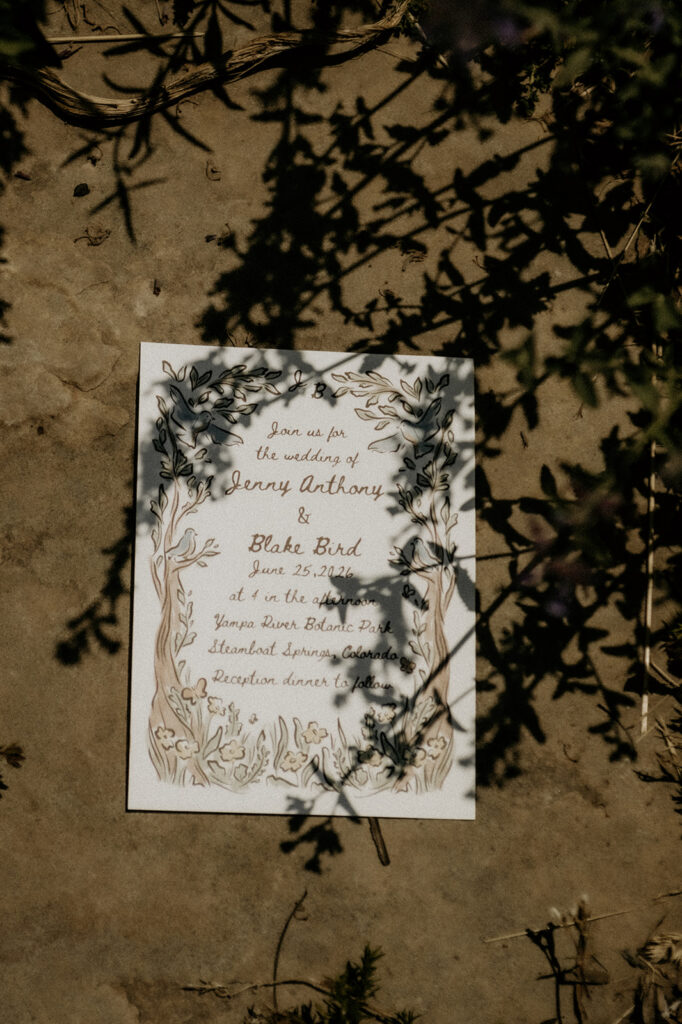 & B
Join us for
the wedding of
Jenny Anthony
&
Blake Bird
June 25, 2026
at 4 in the afternoon
Yampa River Botanic Park
Steamboat Springs, Colorado
Reception dinner to follow